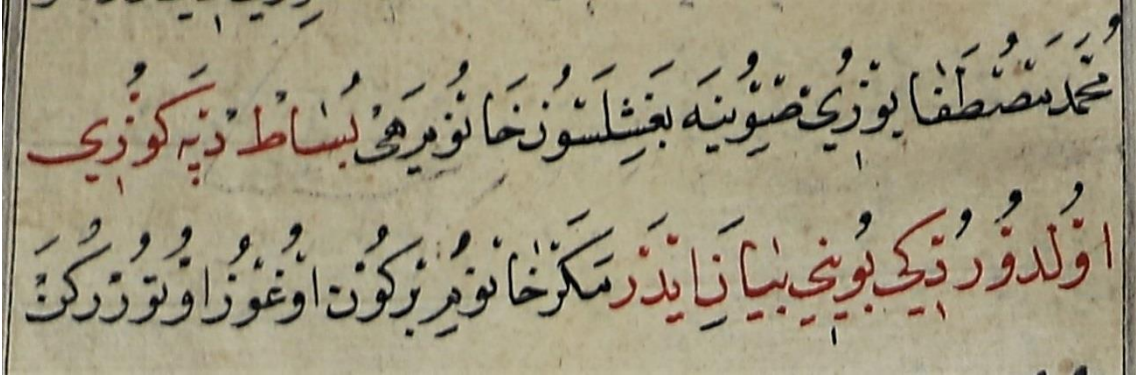 مُحَمَّد مُصْطَفٰا يُوزِی صُيُونَه بَغِشِلَسُونْ خَانُومْ هَیْ بُسَاطْ دَپَه كُوزِی
اُولْدُوردُكِی بُويِی بَيَانْ اِيدَرْ مَكَرْ خَانُومْ بِرْ كُونْ اُوغُوزْ اُوتُورُرْكَنْ